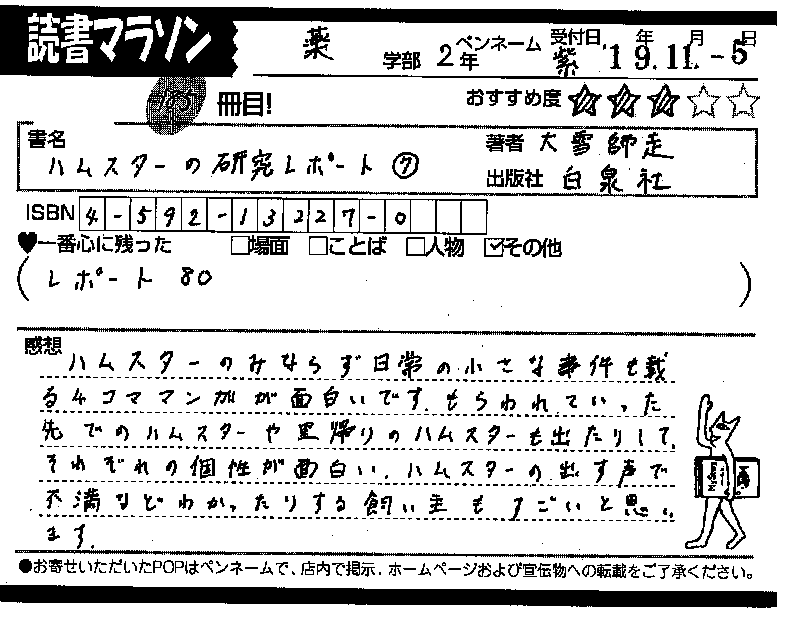 読書マラソン
薬 学部 2年 ペンネーム 紫 受付日 '19年 11月 -5日
冊目!
おすすめ度 ★★★☆☆
書名 ハムスターの研究レポート ⑦
著者 大雪師走
出版社 白泉社
ISBN 4-592-13227-0
♥一番心に残った □場面 □ことば □人物 ☑その他
(レポート 80)
感想
ハムスターのみならず日常の小さな事件も載
る4コママンガが面白いです。もらわれていった
先でのハムスターや里帰りのハムスターも出たりして、
それぞれの個性が面白い。ハムスターの出す声で
不満などわかったりする飼い主もすごいと思い
ます。
●お寄せいただいたPOPはペンネームで、店内で掲示、ホームページおよび宣伝物への転載をご了承ください。